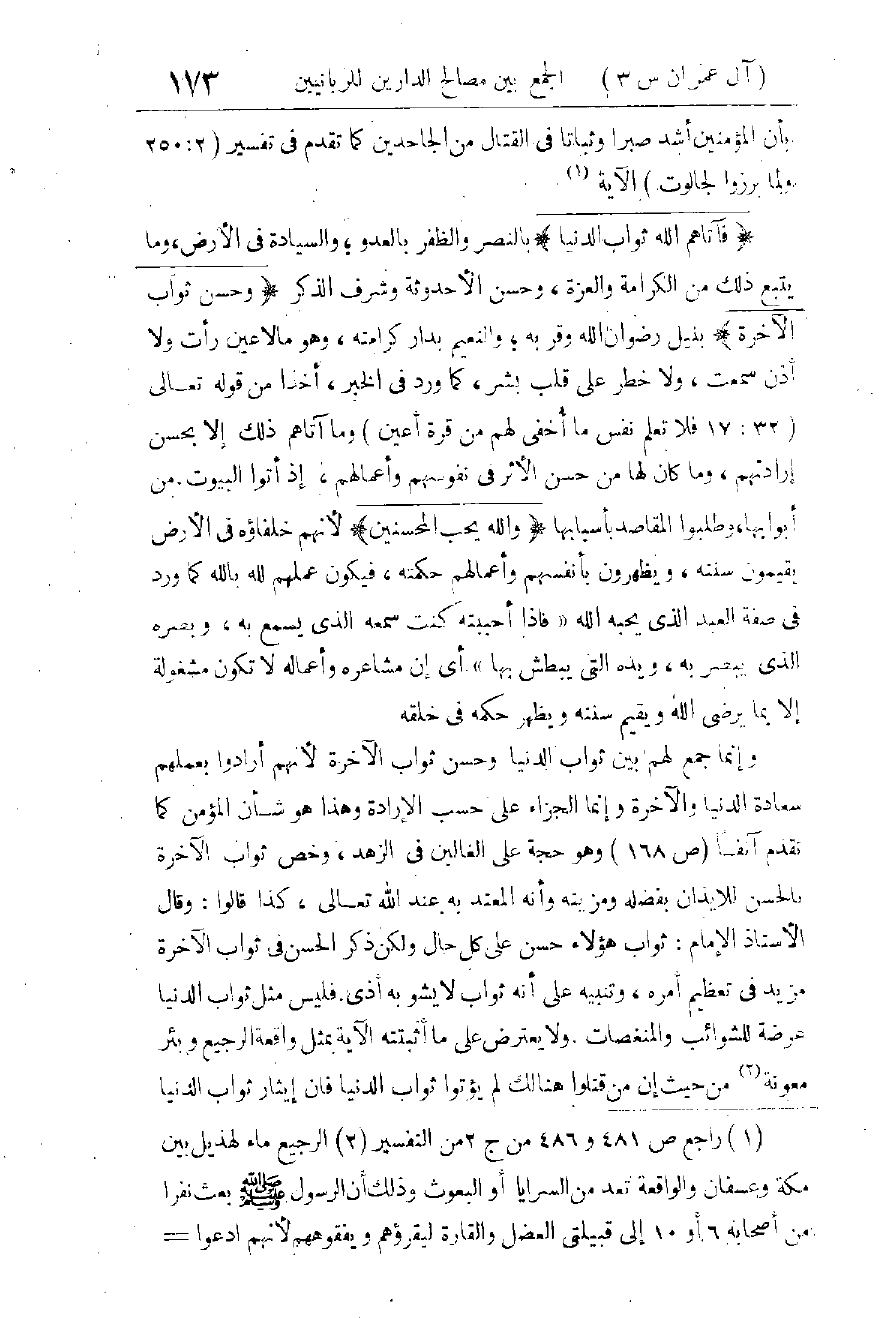 (آل عمران س ٣) الجمع بين مصالح الدارين للربانيين ١٧٣
بأن المؤمنين أشد صبرا وثباتا فى القتال من الجاحدين كما تقدم فى تفسير (٢: ٢٥٠
ولما برزوا لجالوت) الآية (١)
﴿ فآتاهم الله ثواب الدنيا ﴾ بالنصر والظفر بالعدو، والسيادة فى الأرض، وما
يتبع ذلك من الكرامة والعزة، وحسن الأحدوثة وشرف الذكر ﴿ وحسن ثواب
الآخرة ﴾ بنيل رضوان الله وقربه، والنعيم بدار كرامته، وهو مالا عين رأت ولا
أذن سمعت، ولا خطر على قلب بشر، كما ورد فى الخبر، أخذا من قوله تعالى
(٣٢: ١٧ فلا تعلم نفس ما أُخفى لهم من قرة أعين) وما آتاهم ذلك إلا بحسن
إرادتهم، وما كان لها من حسن الأثر فى نفوسهم وأعمالهم، إذ أتوا البيوت من
أبوابها، وطلبوا المقاصد بأسبابها ﴿ والله يحب المحسنين ﴾ لأنهم خلفاؤه فى الأرض
يقيمون سننه، ويظهرون بأنفسهم وأعمالهم حكمته، فيكون عملهم لله بالله كما ورد
فى صفة العبد الذى يحبه الله « فاذا أحببته كنت سمعه الذى يسمع به، وبصره
الذى يبصر به، ويده التى يبطش بها » أى إن مشاعره وأعماله لا تكون مشغولة
إلا بما يرضى الله ويقيم سننه ويظهر حكمه فى خلقه
وإنما جمع لهم بين ثواب الدنيا وحسن ثواب الآخرة لأنهم أرادوا بعملهم
سعادة الدنيا والآخرة وإنما الجزاء على حسب الإرادة وهذا هو شأن المؤمن كما
تقدم آنفاً (ص ١٦٨) وهو حجة على الغالين فى الزهد، وخص ثواب الآخرة
بالحسن للايذان بفضله ومزيته وأنه المعتد به عند الله تعالى، كذا قالوا: وقال
الأستاذ الإمام: ثواب هؤلاء حسن على كل حال ولكن ذكر الحسن فى ثواب الآخرة
مزيد فى تعظيم أمره، وتنبيه على أنه ثواب لا يشوبه أذى. فليس مثل ثواب الدنيا
عرضة للشوائب والمنغصات. ولا يعترض على ما أثبتته الآية بمثل واقعة الرجيع وبئر
معونة (٢) من حيث إن من قتلوا هنالك لم يؤتوا ثواب الدنيا فان إيثار ثواب الدنيا
(١) راجع ص ٤٨١ و ٤٨٦ من ج ٢ من التفسير (٢) الرجيع ماء لهذيل بين
مكة وعسفان والواقعة تعد من السرايا أو البعوث وذلك أن الرسول ﷺ بعث نفرا
من أصحابه ٦ أو ١٠ إلى قبيلتى العضل والقارة ليقرؤهم ويفقهوهم لأنهم ادعوا =